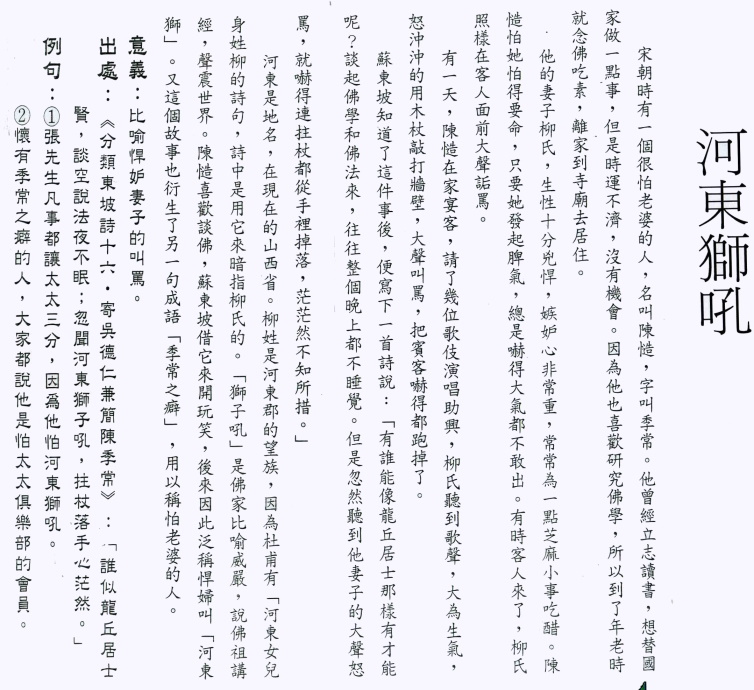 河東獅吼
宋朝時有一個很怕老婆的人，名叫陳慥，字叫季常。他曾經立志讀書，想替國
家做一點事，但是時運不濟，沒有機會。因為他也喜歡研究佛學，所以到了年老時
就念佛吃素，離家到寺廟去居住。
他的妻子柳氏，生性十分兇悍，嫉妒心非常重，常常為一點芝麻小事吃醋。陳
慥怕她怕得要命，只要她發起脾氣，總是嚇得大氣都不敢出。有時客人來了，柳氏
照樣在客人面前大聲詬罵。
有一天，陳慥在家宴客，請了幾位歌伎演唱助興，柳氏聽到歌聲，大為生氣，
怒沖沖的用木杖敲打牆壁，大聲叫罵，把賓客嚇得都跑掉了。
蘇東坡知道了這件事後，便寫下一首詩說：「有誰能像龍丘居士那樣有才能
呢？談起佛學和佛法來，往往整個晚上都不睡覺。但是忽然聽到他妻子的大聲怒
罵，就嚇得連拄杖都從手裡掉落，茫茫然不知所措。」
河東是地名，在現在的山西省。柳姓是河東郡的望族，因為杜甫有「河東女兒
身姓柳的詩句，詩中是用它來暗指柳氏的。「獅子吼」是佛家比喻威嚴，說佛祖講
經，聲震世界。陳慥喜歡談佛，蘇東坡借它來開玩笑，後來因此泛稱悍婦叫「河東
獅」。又這個故事也衍生了另一句成語「季常之癖」，用以稱怕老婆的人。
意義：比喻悍妒妻子的叫罵。
出處：《分類東坡詩十六·寄吳德仁兼簡陳季常》：「誰似龍丘居士
賢，談空說法夜不眠；忽聞河東獅子吼，拄杖落手心茫然。」
例句：①張先生凡事都讓太太三分，因為他怕河東獅吼。
②懷有季常之癖的人，大家都說他是怕太太俱樂部的會員。